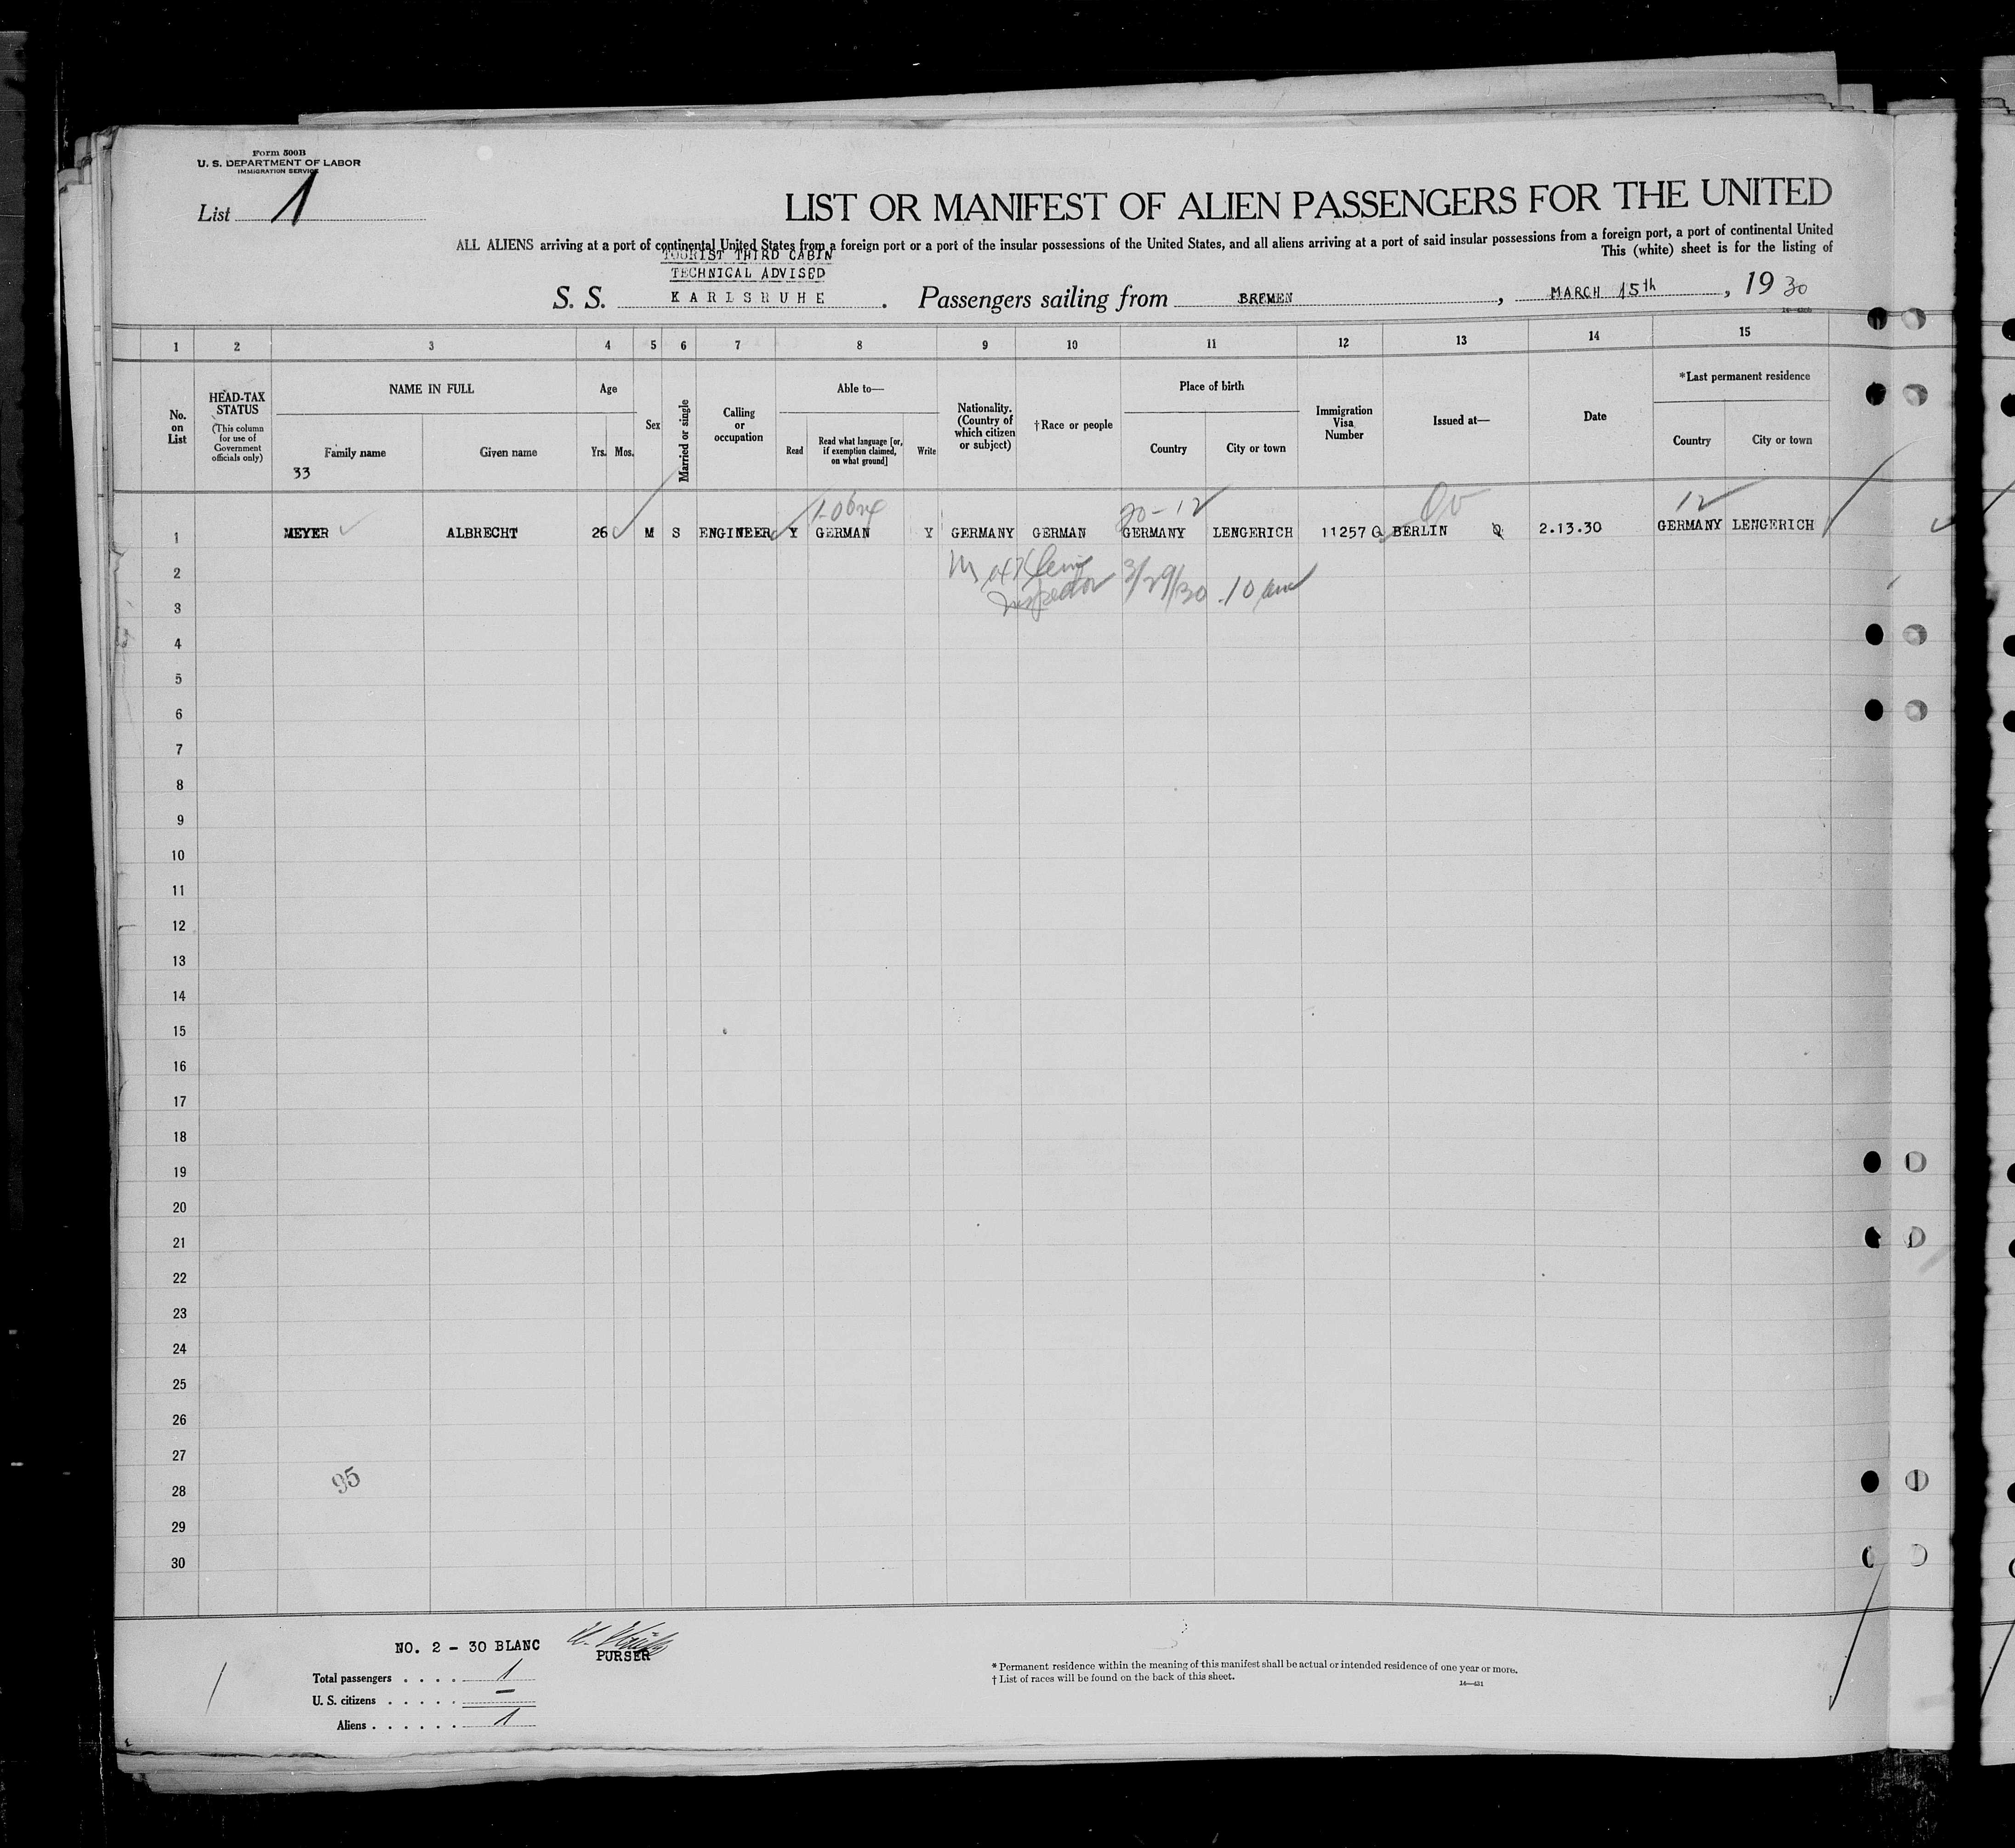 Form 500B
U. S. DEPARTMENT OF LABOR
IMMIGRATION SERVICE
List 1
LIST OR MANIFEST OF ALIEN PASSENGERS FOR THE UNITED
ALL ALIENS arriving at a port of continental United States from a foreign port or a port of the insular possessions of the United States, and all aliens arriving at a port of said insular possessions from a foreign port, a port of continental United
This (white) sheet is for the listing of
TOURIST THIRD CABIN
TECHNICAL ADVISED
S. S. KARLSRUHE. Passengers sailing from BREMEN, MARCH 15th, 1930
1 2 3 4 5 6 7 8 9 10 11 12 13 14 15
No. on List
HEAD-TAX STATUS
(This column for use of Government officials only)
NAME IN FULL
Family name
Given name
33
Age
Yrs. Mos.
Sex
Married or single
Calling or occupation
Able to—
Read
Read what language [or, if exemption claimed, on what ground]
Write
Nationality. (Country of which citizen or subject)
†Race or people
Place of birth
Country
City or town
Immigration Visa Number
Issued at—
Date
*Last permanent residence
Country
City or town
20-12
12
1 MEYER ALBRECHT 26 M S ENGINEER Y GERMAN Y GERMANY GERMAN GERMANY LENGERICH 11257 Q BERLIN Q 2.13.30 GERMANY LENGERICH
2
Inspector 3/29/30 10 am
3
4
5
6
7
8
9
10
11
12
13
14
15
16
17
18
19
20
21
22
23
24
25
26
27
28
95
29
30
NO. 2 - 30 BLANC
PURSER
Total passengers . . . . 1
U. S. citizens . . . . . —
Aliens . . . . . . 1
* Permanent residence within the meaning of this manifest shall be actual or intended residence of one year or more.
† List of races will be found on the back of this sheet.
14—431